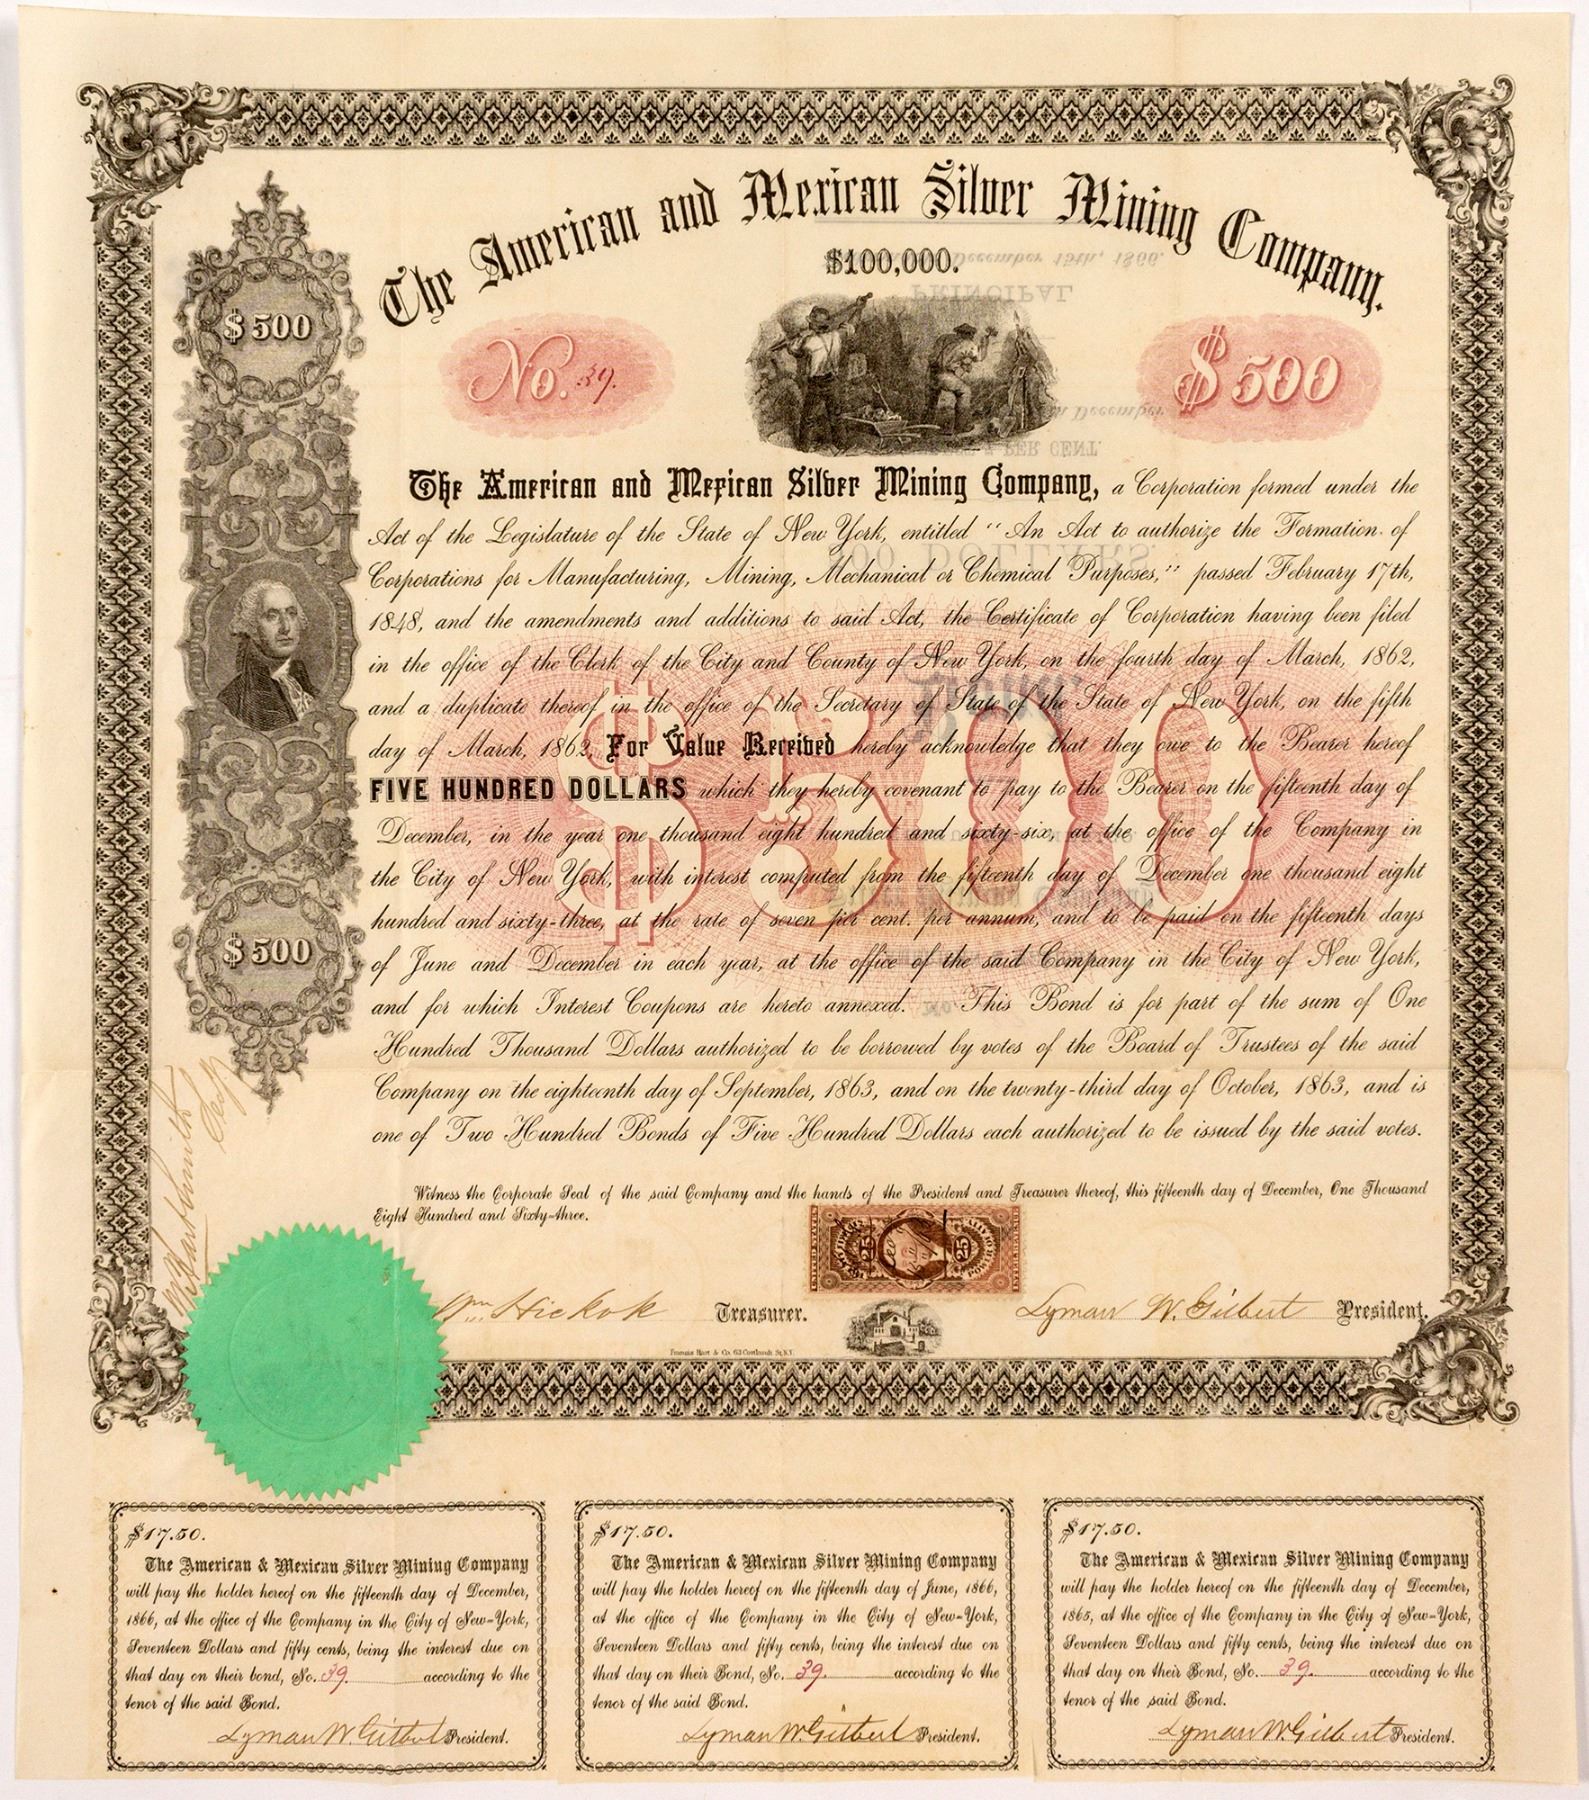 The American and Mexican Silver Mining Company.
$100,000.
$500
No. 39.
$500
The American and Mexican Silver Mining Company, a Corporation formed under the
Act of the Legislature of the State of New York, entitled "An Act to authorize the Formation of
Corporations for Manufacturing, Mining, Mechanical or Chemical Purposes," passed February 17th,
1848, and the amendments and additions to said Act, the Certificate of Corporation having been filed
in the office of the Clerk of the City and County of New York, on the fourth day of March, 1862,
and a duplicate thereof in the office of the Secretary of State of the State of New York, on the fifth
day of March, 1862, For Value Received hereby acknowledge that they owe to the Bearer hereof
FIVE HUNDRED DOLLARS which they hereby covenant to pay to the Bearer on the fifteenth day of
December, in the year one thousand eight hundred and sixty-six, at the office of the Company in
the City of New York, with interest computed from the fifteenth day of December one thousand eight
hundred and sixty-three, at the rate of seven per cent. per annum, and to be paid on the fifteenth days
of June and December in each year, at the office of the said Company in the City of New York,
and for which Interest Coupons are hereto annexed. This Bond is for part of the sum of One
Hundred Thousand Dollars authorized to be borrowed by votes of the Board of Trustees of the said
Company on the eighteenth day of September, 1863, and on the twenty-third day of October, 1863, and is
one of Two Hundred Bonds of Five Hundred Dollars each authorized to be issued by the said votes.
$500
$500
Witness the Corporate Seal of the said Company and the hands of the President and Treasurer thereof, this fifteenth day of December, One Thousand
Eight Hundred and Sixty-three.
25 25
Wm Hickok Treasurer.
Lyman W. Gilbert President.
Francis Hart & Co. 63 Cortlandt St. N.Y.
$17.50.
The American & Mexican Silver Mining Company
will pay the holder hereof on the fifteenth day of December,
1866, at the office of the Company in the City of New-York,
Seventeen Dollars and fifty cents, being the interest due on
that day on their bond, No. 39. according to the
tenor of the said Bond.
Lyman W. Gilbert President.
$17.50.
The American & Mexican Silver Mining Company
will pay the holder hereof on the fifteenth day of June, 1866,
at the office of the Company in the City of New-York,
Seventeen Dollars and fifty cents, being the interest due on
that day on their Bond, No. 39. according to the
tenor of the said Bond.
Lyman W. Gilbert President.
$17.50.
The American & Mexican Silver Mining Company
will pay the holder hereof on the fifteenth day of December,
1865, at the office of the Company in the City of New-York,
Seventeen Dollars and fifty cents, being the interest due on
that day on their Bond, No. 39. according to the
tenor of the said Bond.
Lyman W. Gilbert President.